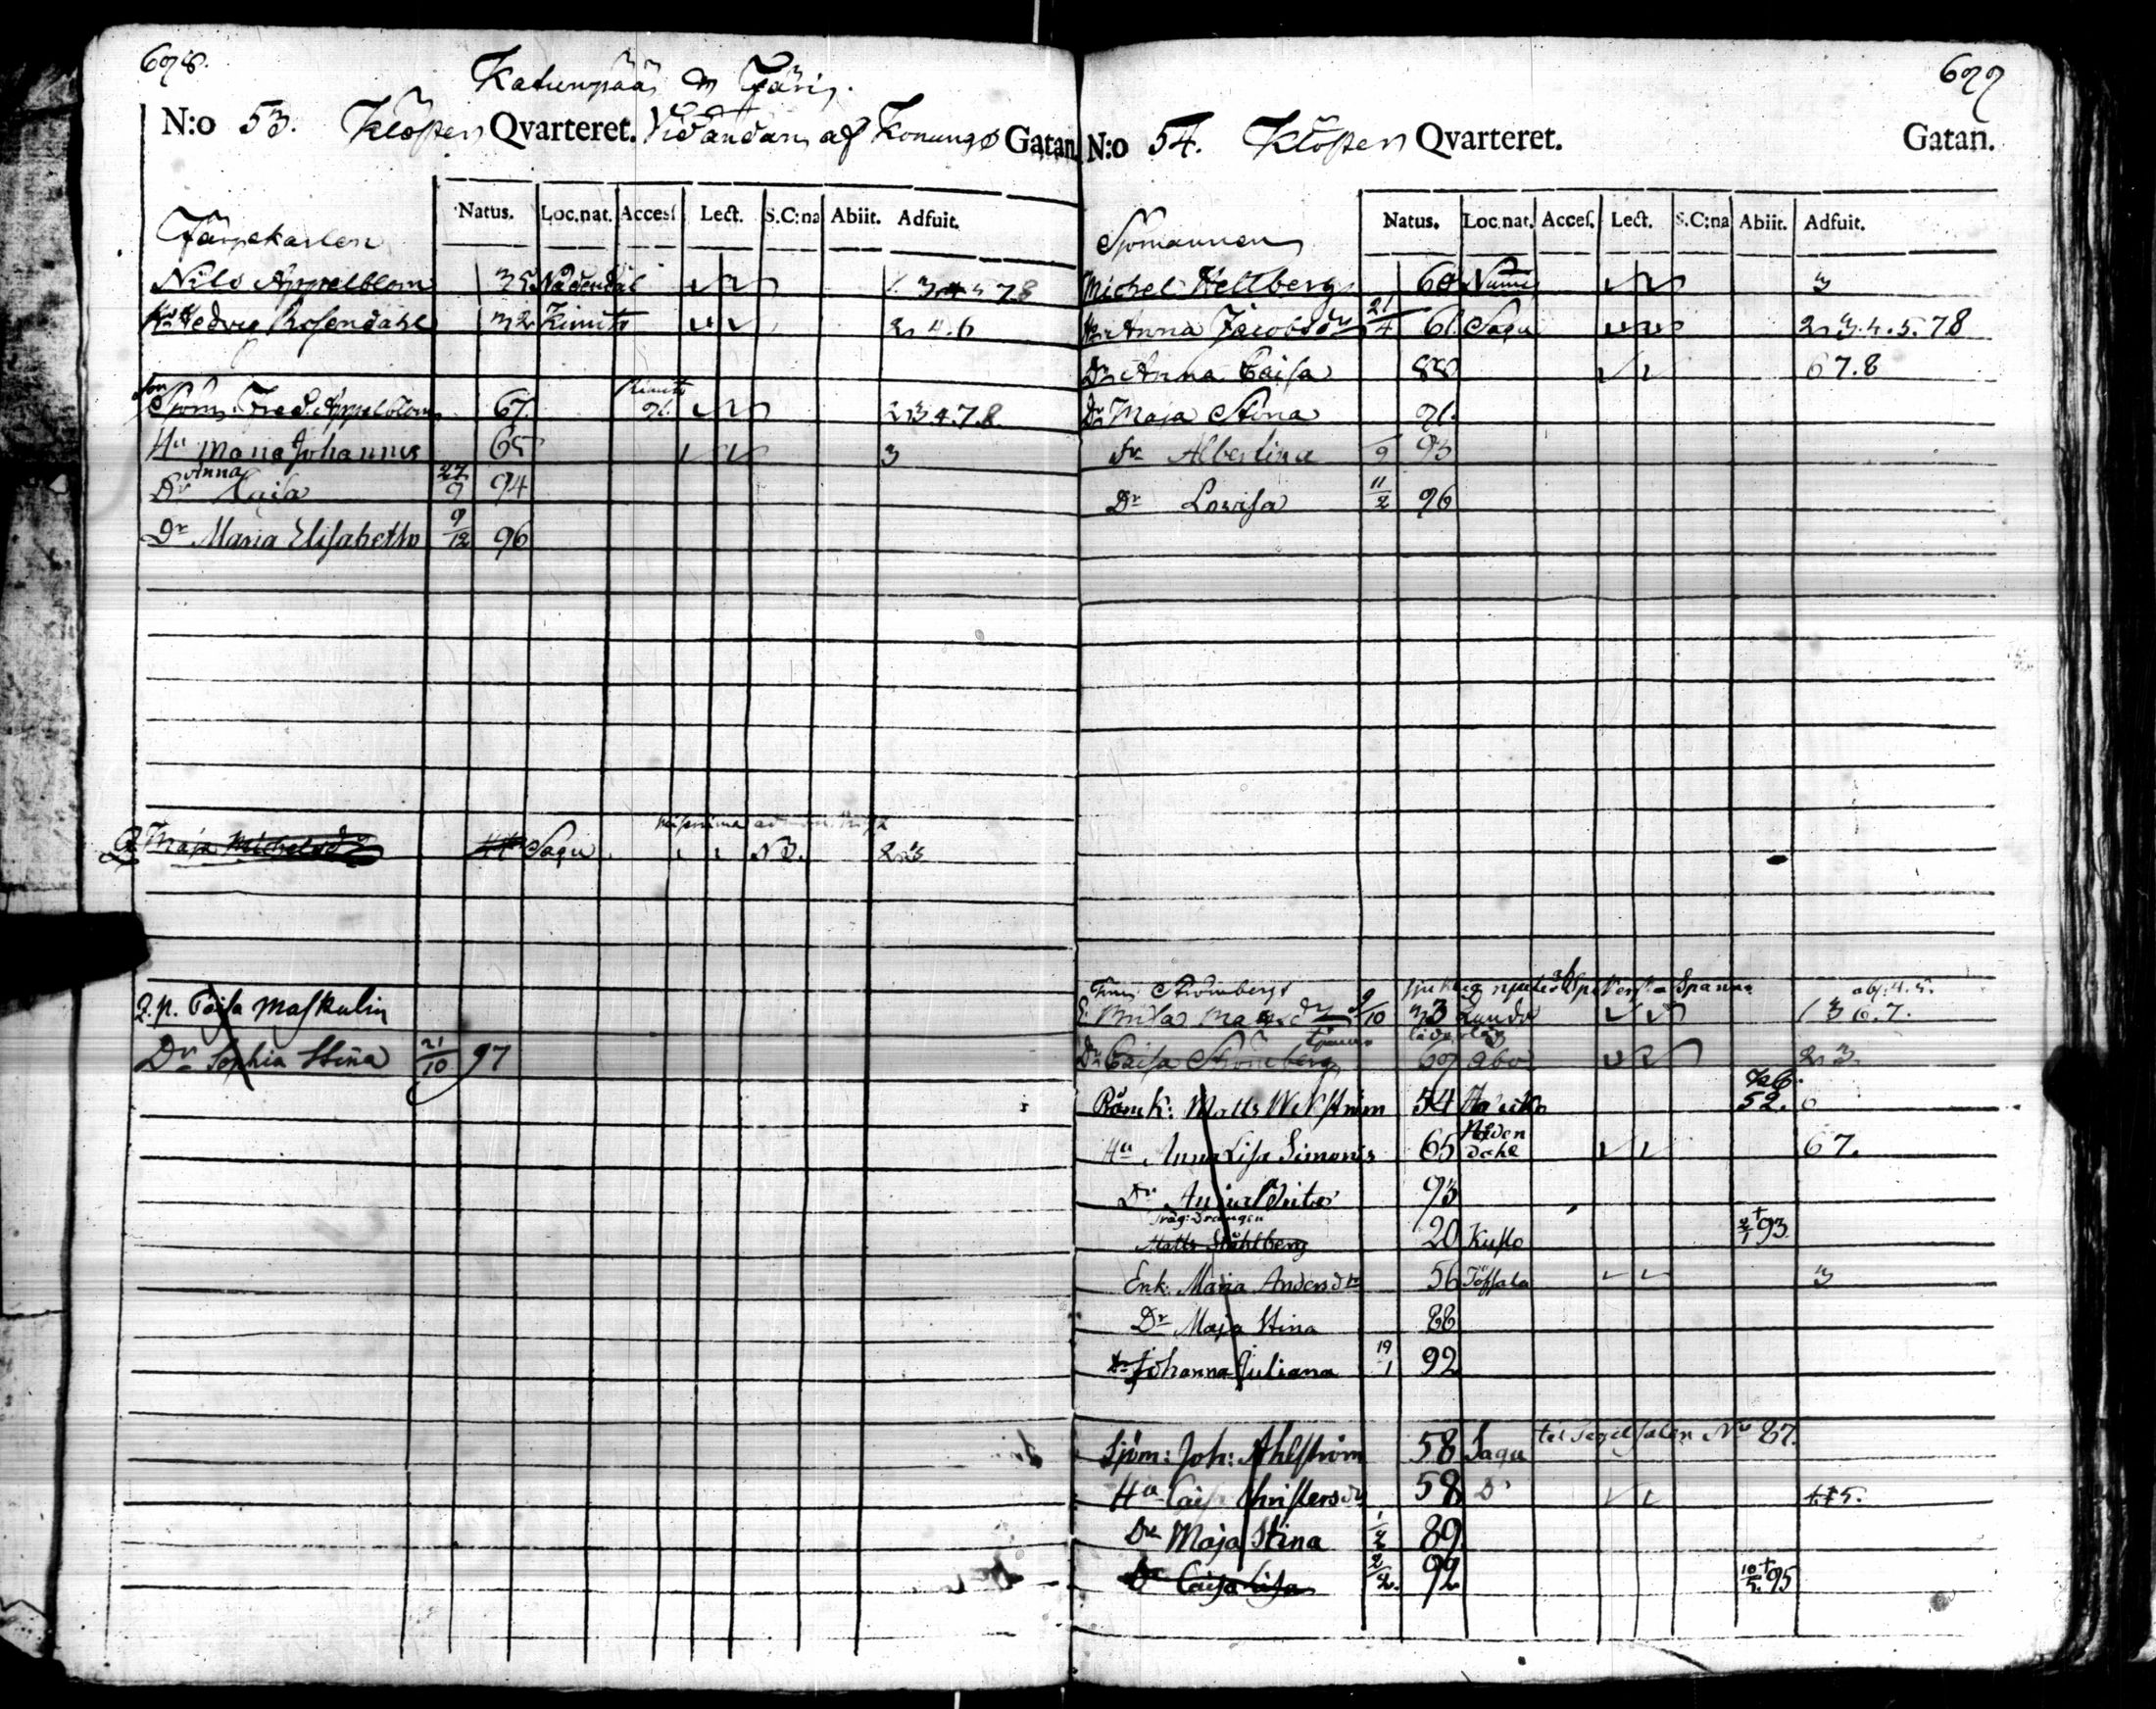 698.
N:o 53. Klöster Qvarteret. Vid ändan af Konungs Gatan
Natus. Loc.nat. Acces. Lect. S.C:na Abiit. Adfuit.
Färjekarlen
Nils Appelblom 35 Nådendal
Hu Hedvig Rosendahl 32 Kimito 2. 4. 6
Son
Sjöm. Fred. Appelblom 67. Kimito 91. 2 3 4. 7. 8.
Hu Maria Johannis 65 3
Dr Anna Caisa 27/9 94
Dr Maria Elisabetha 9/12 96
Maja Michelsdr Sagu N3. 2 3
Q.p. Caisa Maskulin
Dr Sophia Stina 21/10 97
699
N:o 54. Klöster Qvarteret. Gatan.
Natus. Loc.nat. Acces. Lect. S.C:na Abiit. Adfuit.
Sjömannen
Michel Hellberg 60 3
Hu Anna Jacobsdr 21/4 61. Sagu 2. 3. 4. 5. 7 8
Dr Anna Caisa 88 6 7. 8
Dr Maja Stina 91.
Dr Albertina 9 93
Dr Lovisa 11/2 96
Strömbergs
9/10 33 1 3 6. 7.
Dr Caisa Strömberg 69 Åbo 2 3
Matts Wekström 54 52. 6
Hu Anna Lisa Simonis 65 Nåden dahl 6 7.
Dr Anna Brita 93
Träg: Drängen
Matts Ståhlberg 20 Kusto 2/1 + 93.
Enk. Maria Andersdr 56 Töfsala 3
Dr Maja Stina 88
Dr Johanna Juliana 19/1 92
Sjöm: Joh: Ahlström 58 Sagu till Segelsalen No 87.
Hu Caisa Christersdr 58 D
Dr Maja Stina 1/2 89
Dr Caisa Lisa 2/2. 92 10/5. + 95